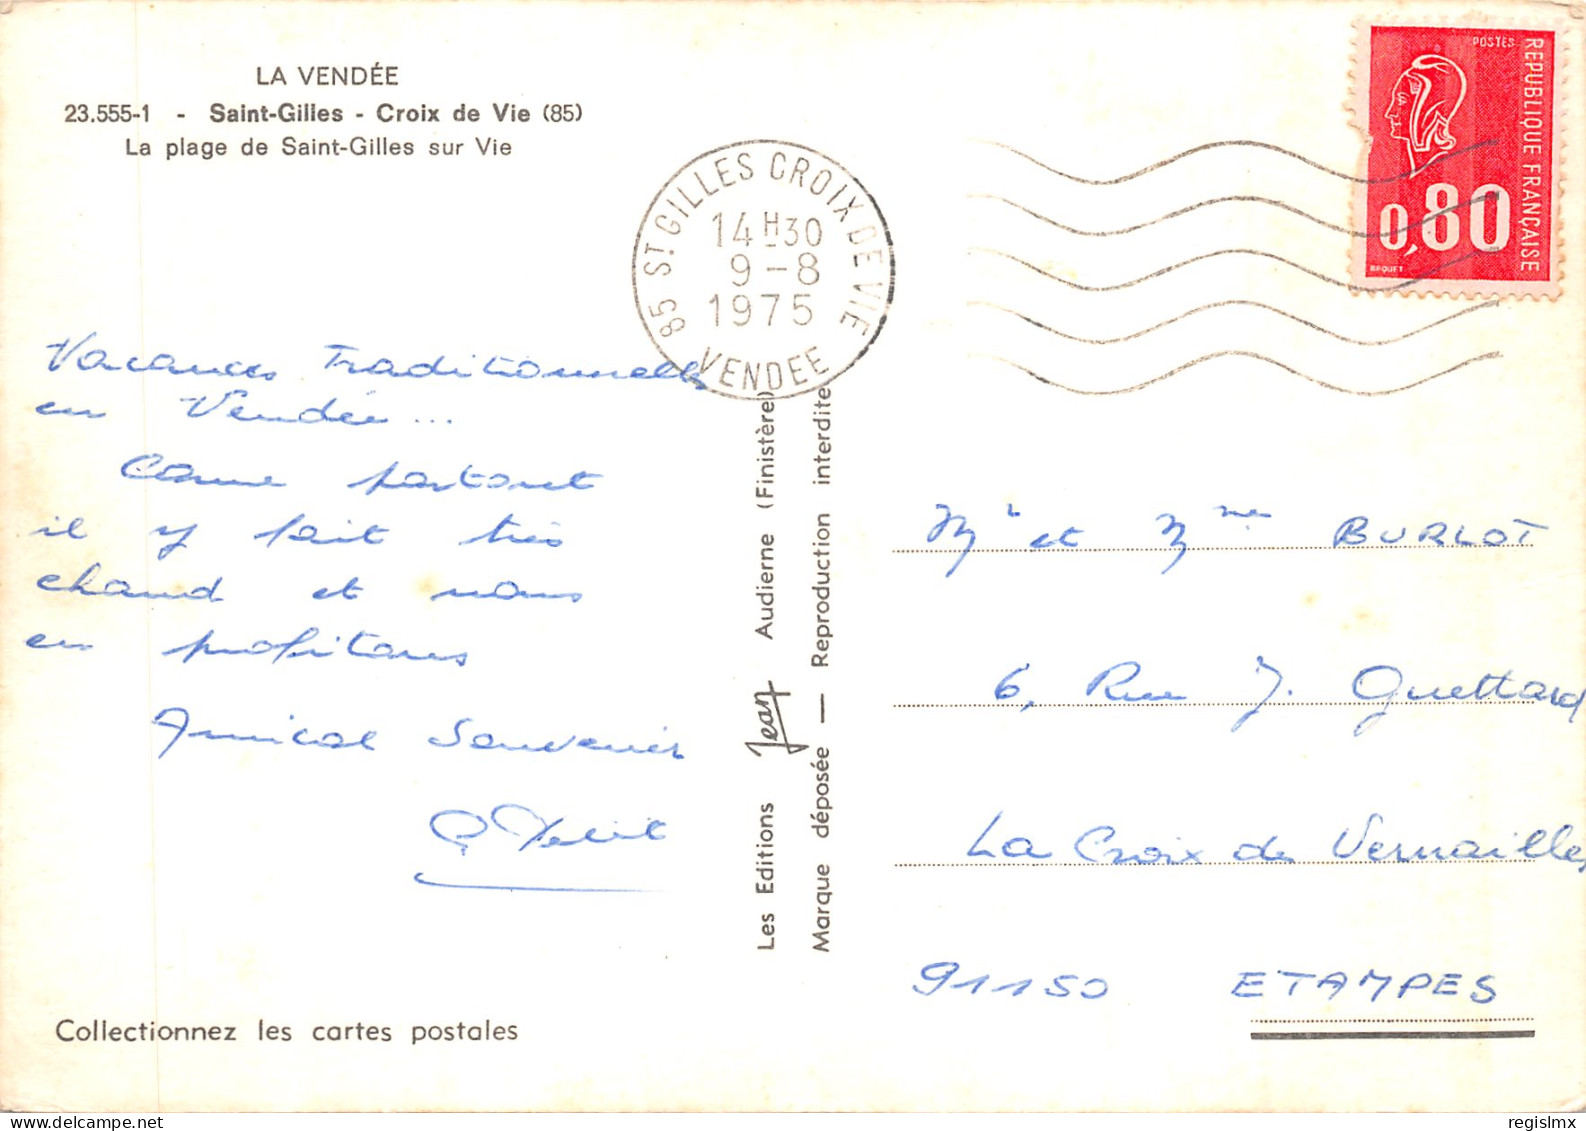 LA VENDÉE
23.555-1 - Saint-Gilles - Croix de Vie (85)
La plage de Saint-Gilles sur Vie
85 ST GILLES CROIX DE VIE
14H30
9-8
1975
VENDEE
POSTES
REPUBLIQUE FRANÇAISE
0,80
BEQUET
Vacances Traditionnelles
en Vendée...
Comme partout
il y fait très
chaud et nous
en profitons
Amical Souvenir
Petit
Les Editions Jean Audierne (Finistère)
Marque déposée — Reproduction interdite
Mr et Mme BURLOT
6, Rue J. Guettard
La Croix de Vernailles
91150 ETAMPES
Collectionnez les cartes postales
regislmx
delcampe.net